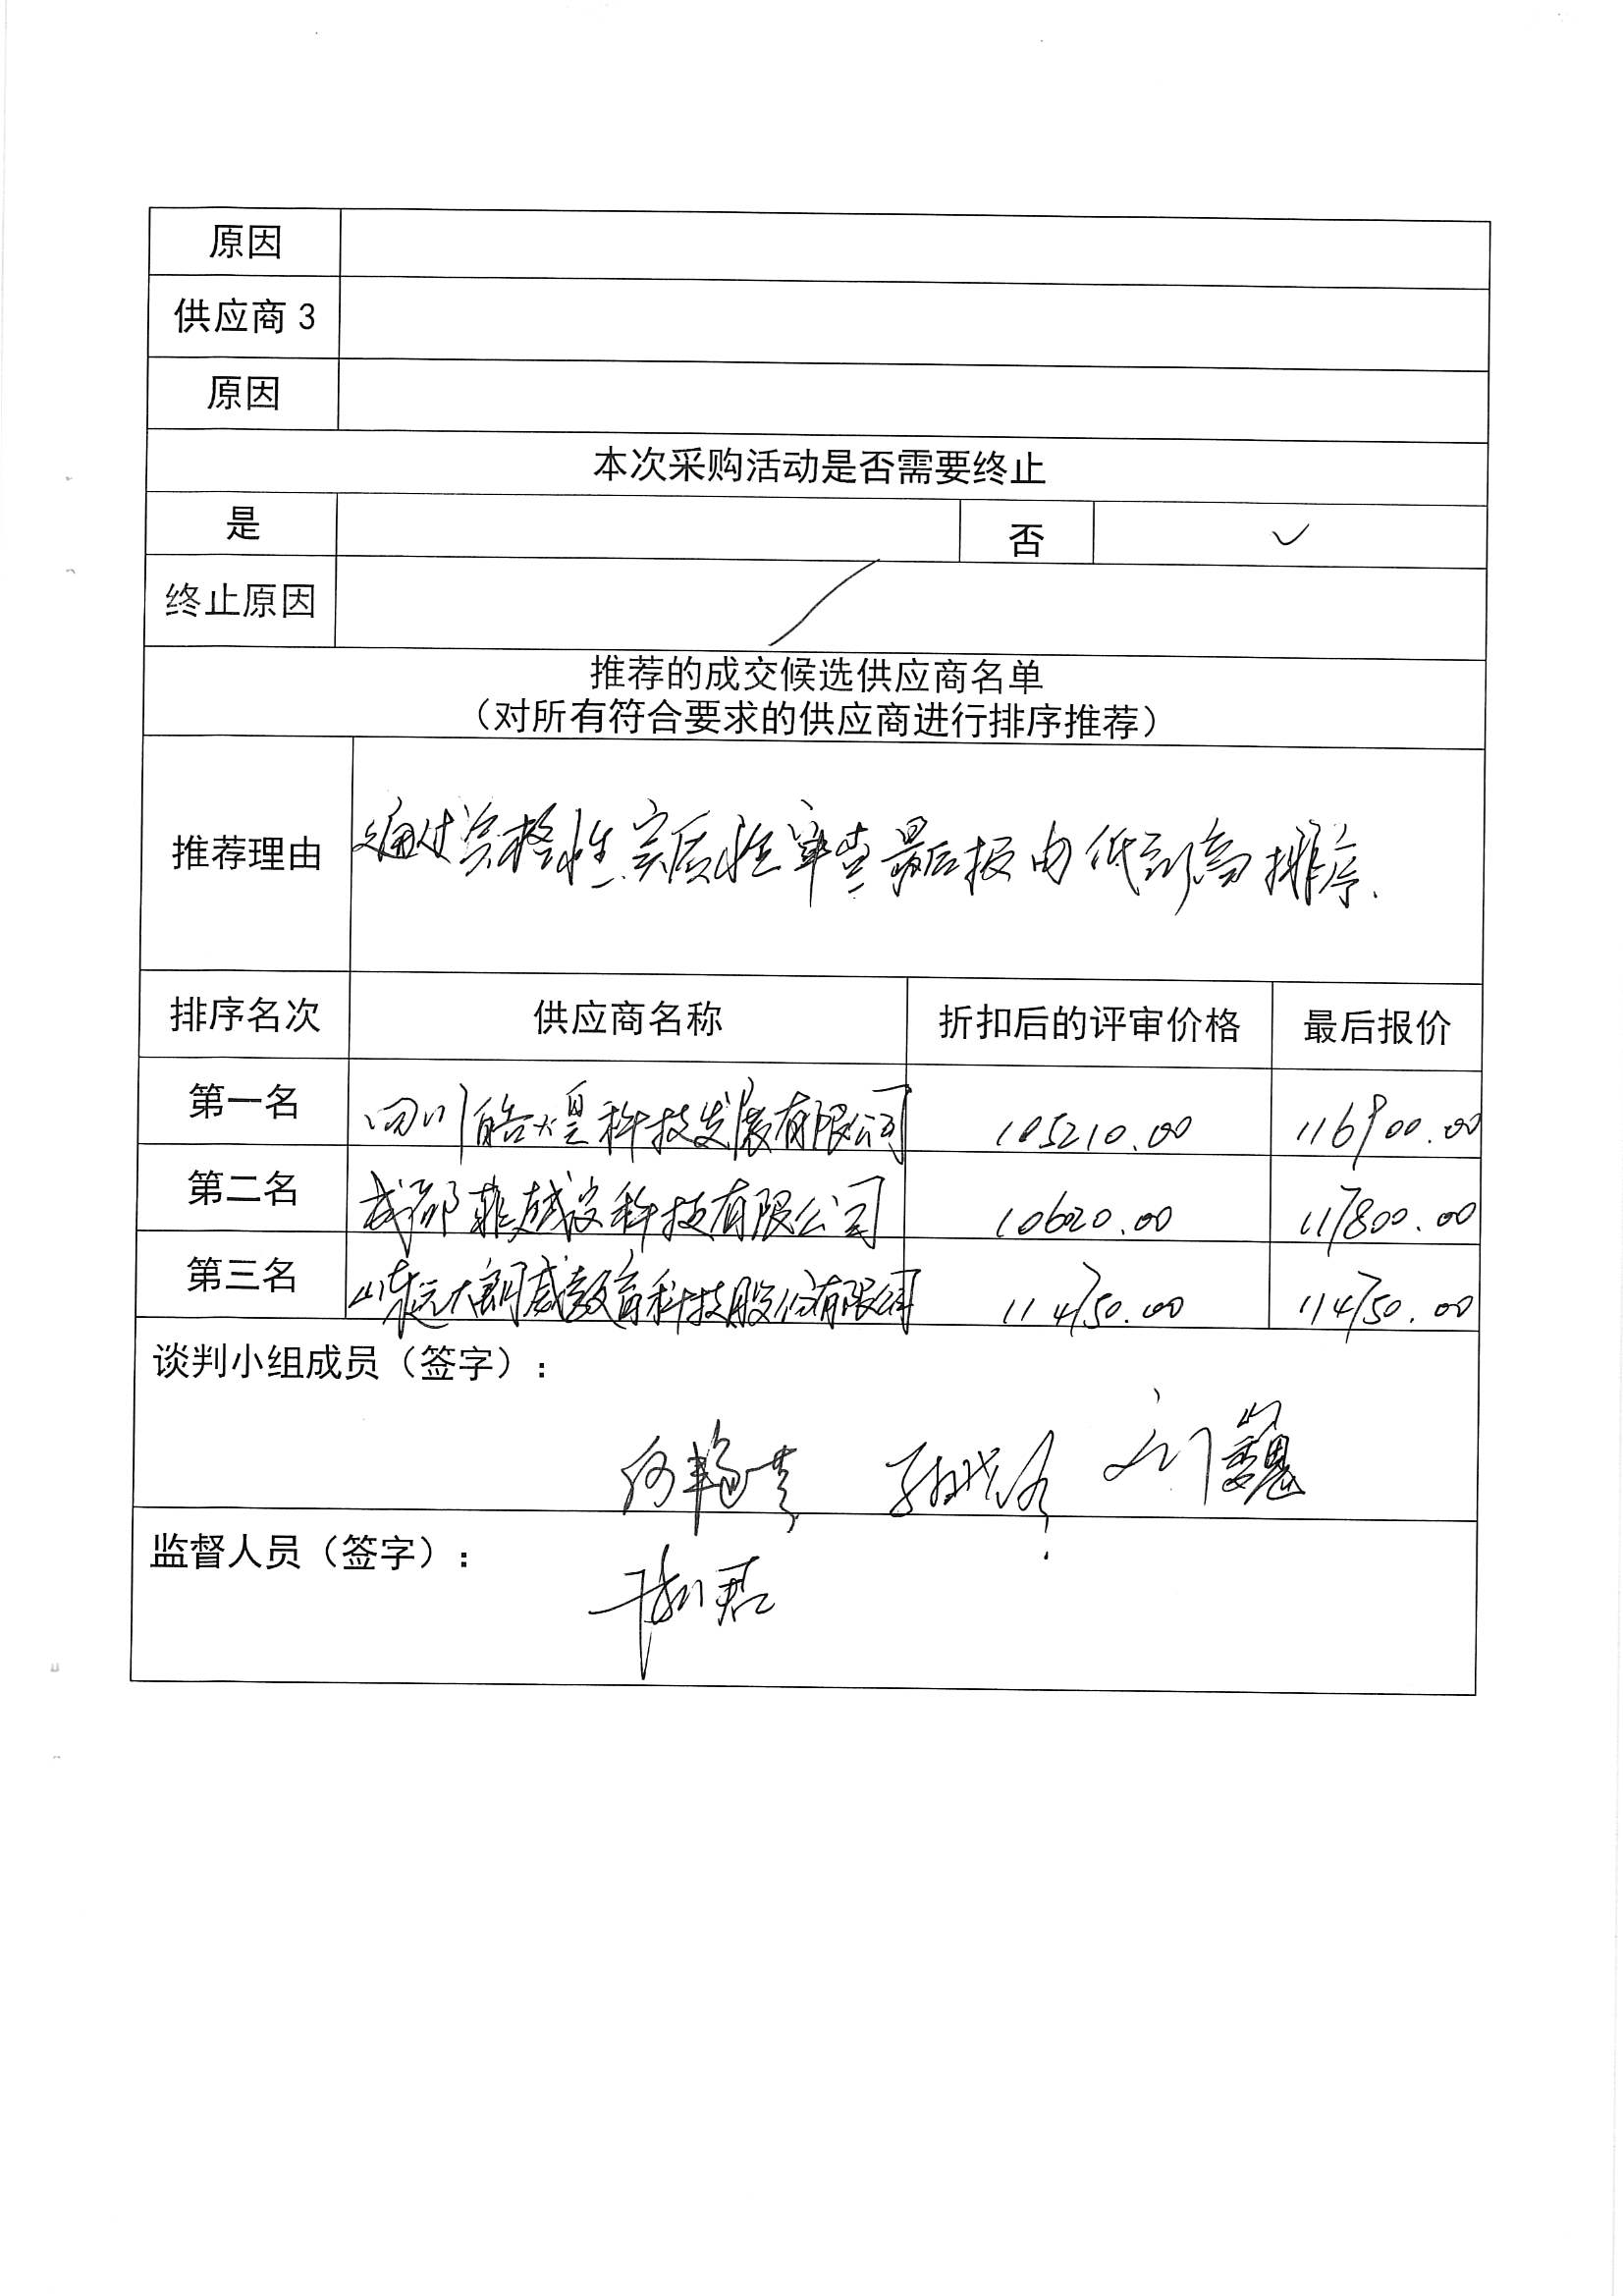 原因
供应商3
原因
本次采购活动是否需要终止
是 否 ✓
终止原因
推荐的成交候选供应商名单
（对所有符合要求的供应商进行排序推荐）
推荐理由 通过资格性、实质性审查最后报由低到高排序.
排序名次 供应商名称 折扣后的评审价格 最后报价
第一名 四川皓煜科技发展有限公司 105210.00 116900.00
第二名 成都菲越汶科技有限公司 106020.00 117800.00
第三名 山东远大朗威教育科技股份有限公司 114750.00 114750.00
谈判小组成员（签字）：
刘巍
监督人员（签字）：